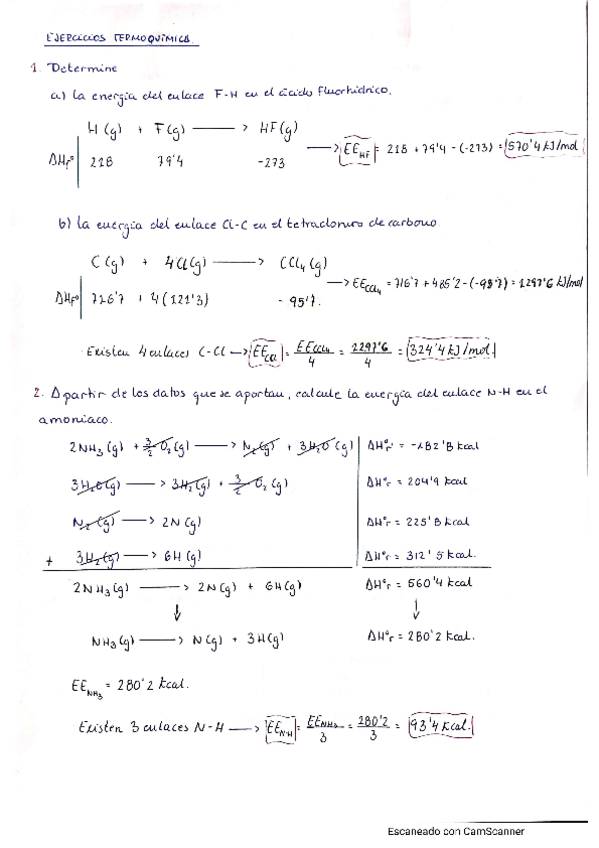 EJERCICIOS TERMOQUÍMICA.
1. Determine
a) la energía del enlace F-H en el ácido fluorhídrico.
H(g) + F(g) ⟶ HF(g)
ΔHf° 218 79'4 -273 ⟶ EE HF = 218 + 79'4 - (-273) = 570'4 kJ/mol
b) La energía del enlace Cl-C en el tetracloruro de carbono.
C(g) + 4Cl(g) ⟶ CCl4(g)
ΔHf° 716'7 + 4(121'3) - 95'7. ⟶ EE CCl4 = 716'7 + 485'2 - (-95'7) = 1297'6 kJ/mol
Existen 4 enlaces C-Cl ⟶ EE CCl = EE CCl4 / 4 = 1297'6 / 4 = 324'4 kJ/mol.
2. A partir de los datos que se aportan, calcule la energía del enlace N-H en el
amoniaco.
2NH3(g) + 3/2 O2(g) ⟶ N2(g) + 3H2O(g) ΔH°r = -182'8 kcal
3H2O(g) ⟶ 3H2(g) + 3/2 O2(g) ΔH°r = 204'9 kcal
N2(g) ⟶ 2N(g) ΔH°r = 225'8 kcal
+ 3H2(g) ⟶ 6H(g) ΔH°r = 312'5 kcal.
2NH3(g) ⟶ 2N(g) + 6H(g) ΔH°r = 560'4 kcal
↓ ↓
NH3(g) ⟶ N(g) + 3H(g) ΔH°r = 280'2 kcal.
EE NH3 = 280'2 kcal.
Existen 3 enlaces N-H ⟶ EE N-H = EE NH3 / 3 = 280'2 / 3 = 93'4 kcal.
Escaneado con CamScanner